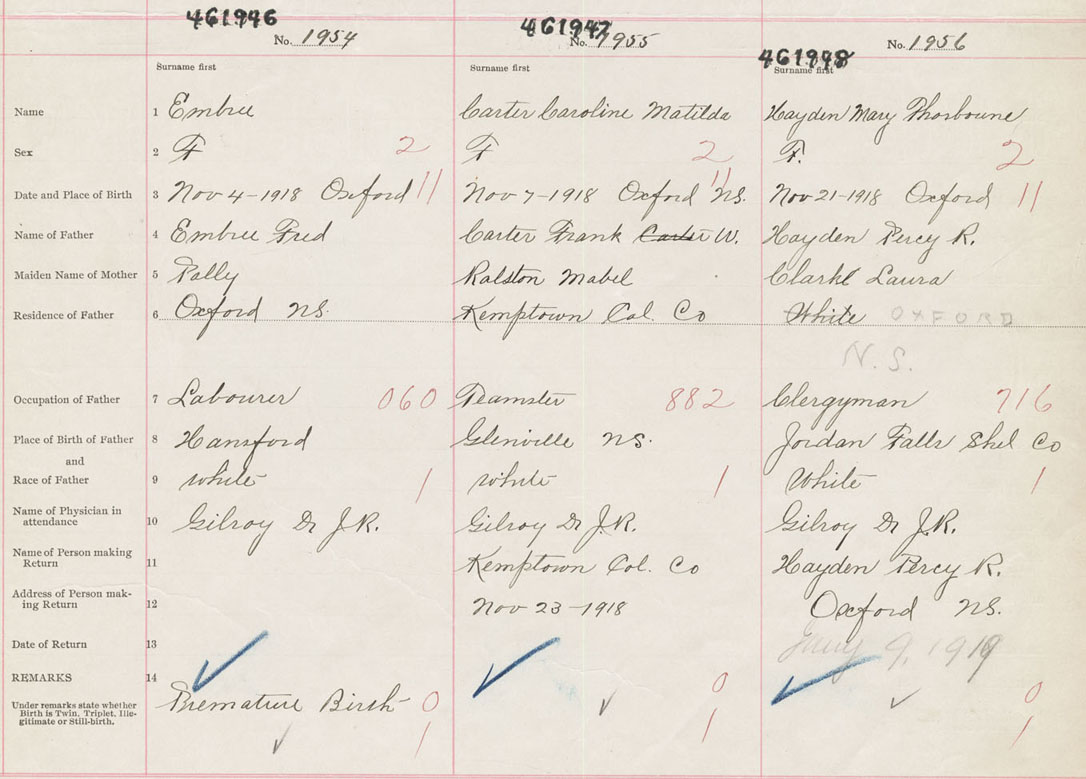 461946 461947 461948
No. 1954 No. 1955 No. 1956
Surname first Surname first Surname first
Name 1 Embree Carter Caroline Matilda Hayden Mary Thorboune
Sex 2 F 2 F 2 F. 2
Date and Place of Birth 3 Nov 4-1918 Oxford 11 Nov 7-1918 Oxford NS. 11 Nov 21-1918 Oxford 11
Name of Father 4 Embree Fred Carter Frank Carter W. Hayden Percy R.
Maiden Name of Mother 5 Ralston Mabel Clarke Laura
Residence of Father 6 Oxford NS. Kemptown Col. Co White OXFORD
N.S.
Occupation of Father 7 Labourer 060 Teamster 882 Clergyman 716
Place of Birth of Father 8 Hansford Glenville NS. Jordan Falls Shel Co
and
Race of Father 9 White 1 White 1 White 1
Name of Physician in
attendance 10 Gilroy Dr J.R. Gilroy Dr J.R. Gilroy Dr J.R.
Name of Person making
Return 11 Kemptown Col. Co Hayden Percy R.
Address of Person mak-
ing Return 12 Nov 23-1918 Oxford NS.
Date of Return 13 9, 1919
REMARKS 14
Under remarks state whether
Birth is Twin, Triplet, Ille-
gitimate or Still-birth.
Premature Birth 0 0 0
1 1 1